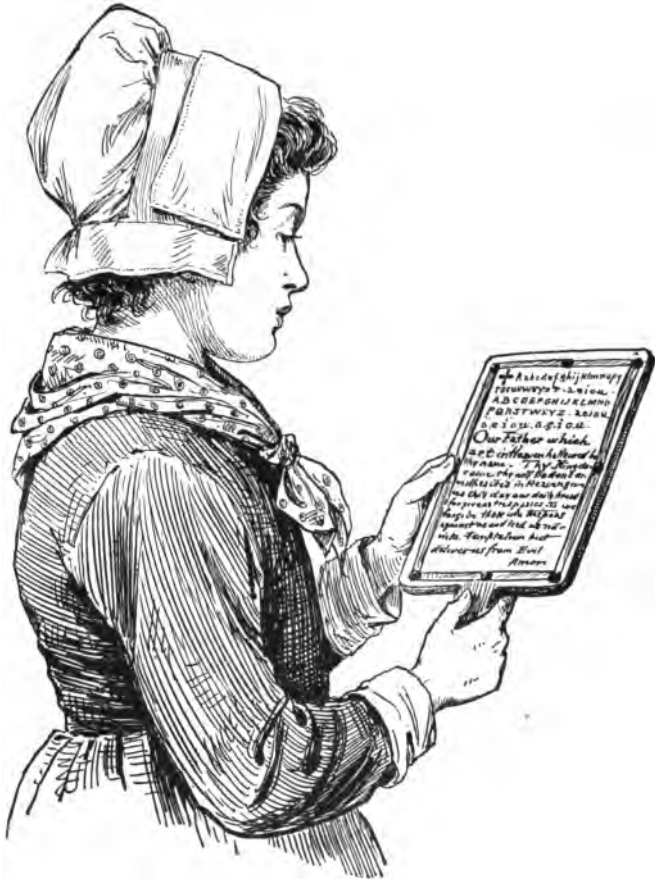 + Aabcdefghijklmnopq
rsstuvwxyz & aeiou
ABCDEFGHIJKLMNO
PQRSTUVWXYZ. aeiou
a.e.i.o.u. a.e.i.o.u.
Our Father which
art in Heaven hallowed be
thy name. Thy Kingdom
come thy will be done on
earth as it is in Heaven give
us this day our daily bread
forgive us trespasses as we
forgive those who trespass
against us and lead us not
into Temptation but
deliver us from Evil
Amen